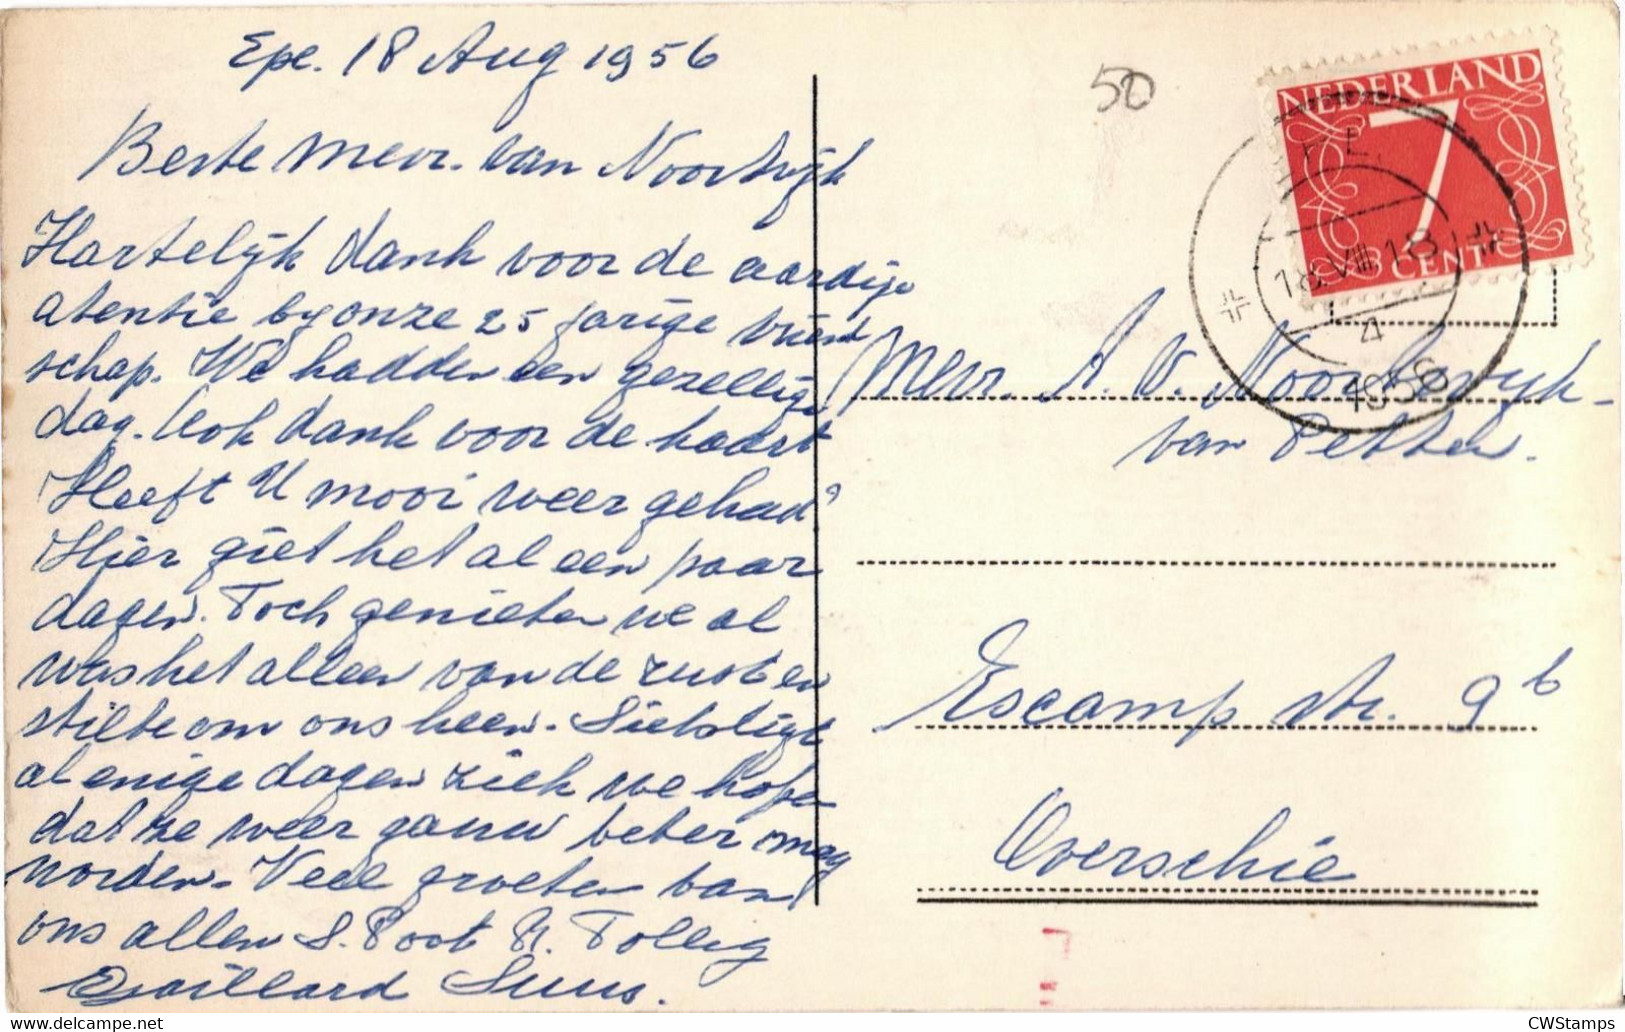 Epe. 18 Aug 1956
Beste mevr. van Noortwijk
Hartelijk dank voor de aardige
atentie by onze 25 jarige vriend
schap. We hadden een gezellige
dag. Ook dank voor de kaart
Heeft U mooi weer gehad?
Hier giet het al een paar
dagen. Toch genieten we al
was het alleen van de rust en
stilte om ons heen. Siets ligt
al enige dagen ziek we hopen
dat ze weer gauw beter mag
worden. Veel groeten van
ons allen S. Poot N. Tollig
Gaillard Suus.
50
NEDERLAND
7
CENT
18.VIII.18
4
1956
Mevr. A. v. Noortwijk -
van Petten.
Escamp str. 9b
Overschie
CWStamps